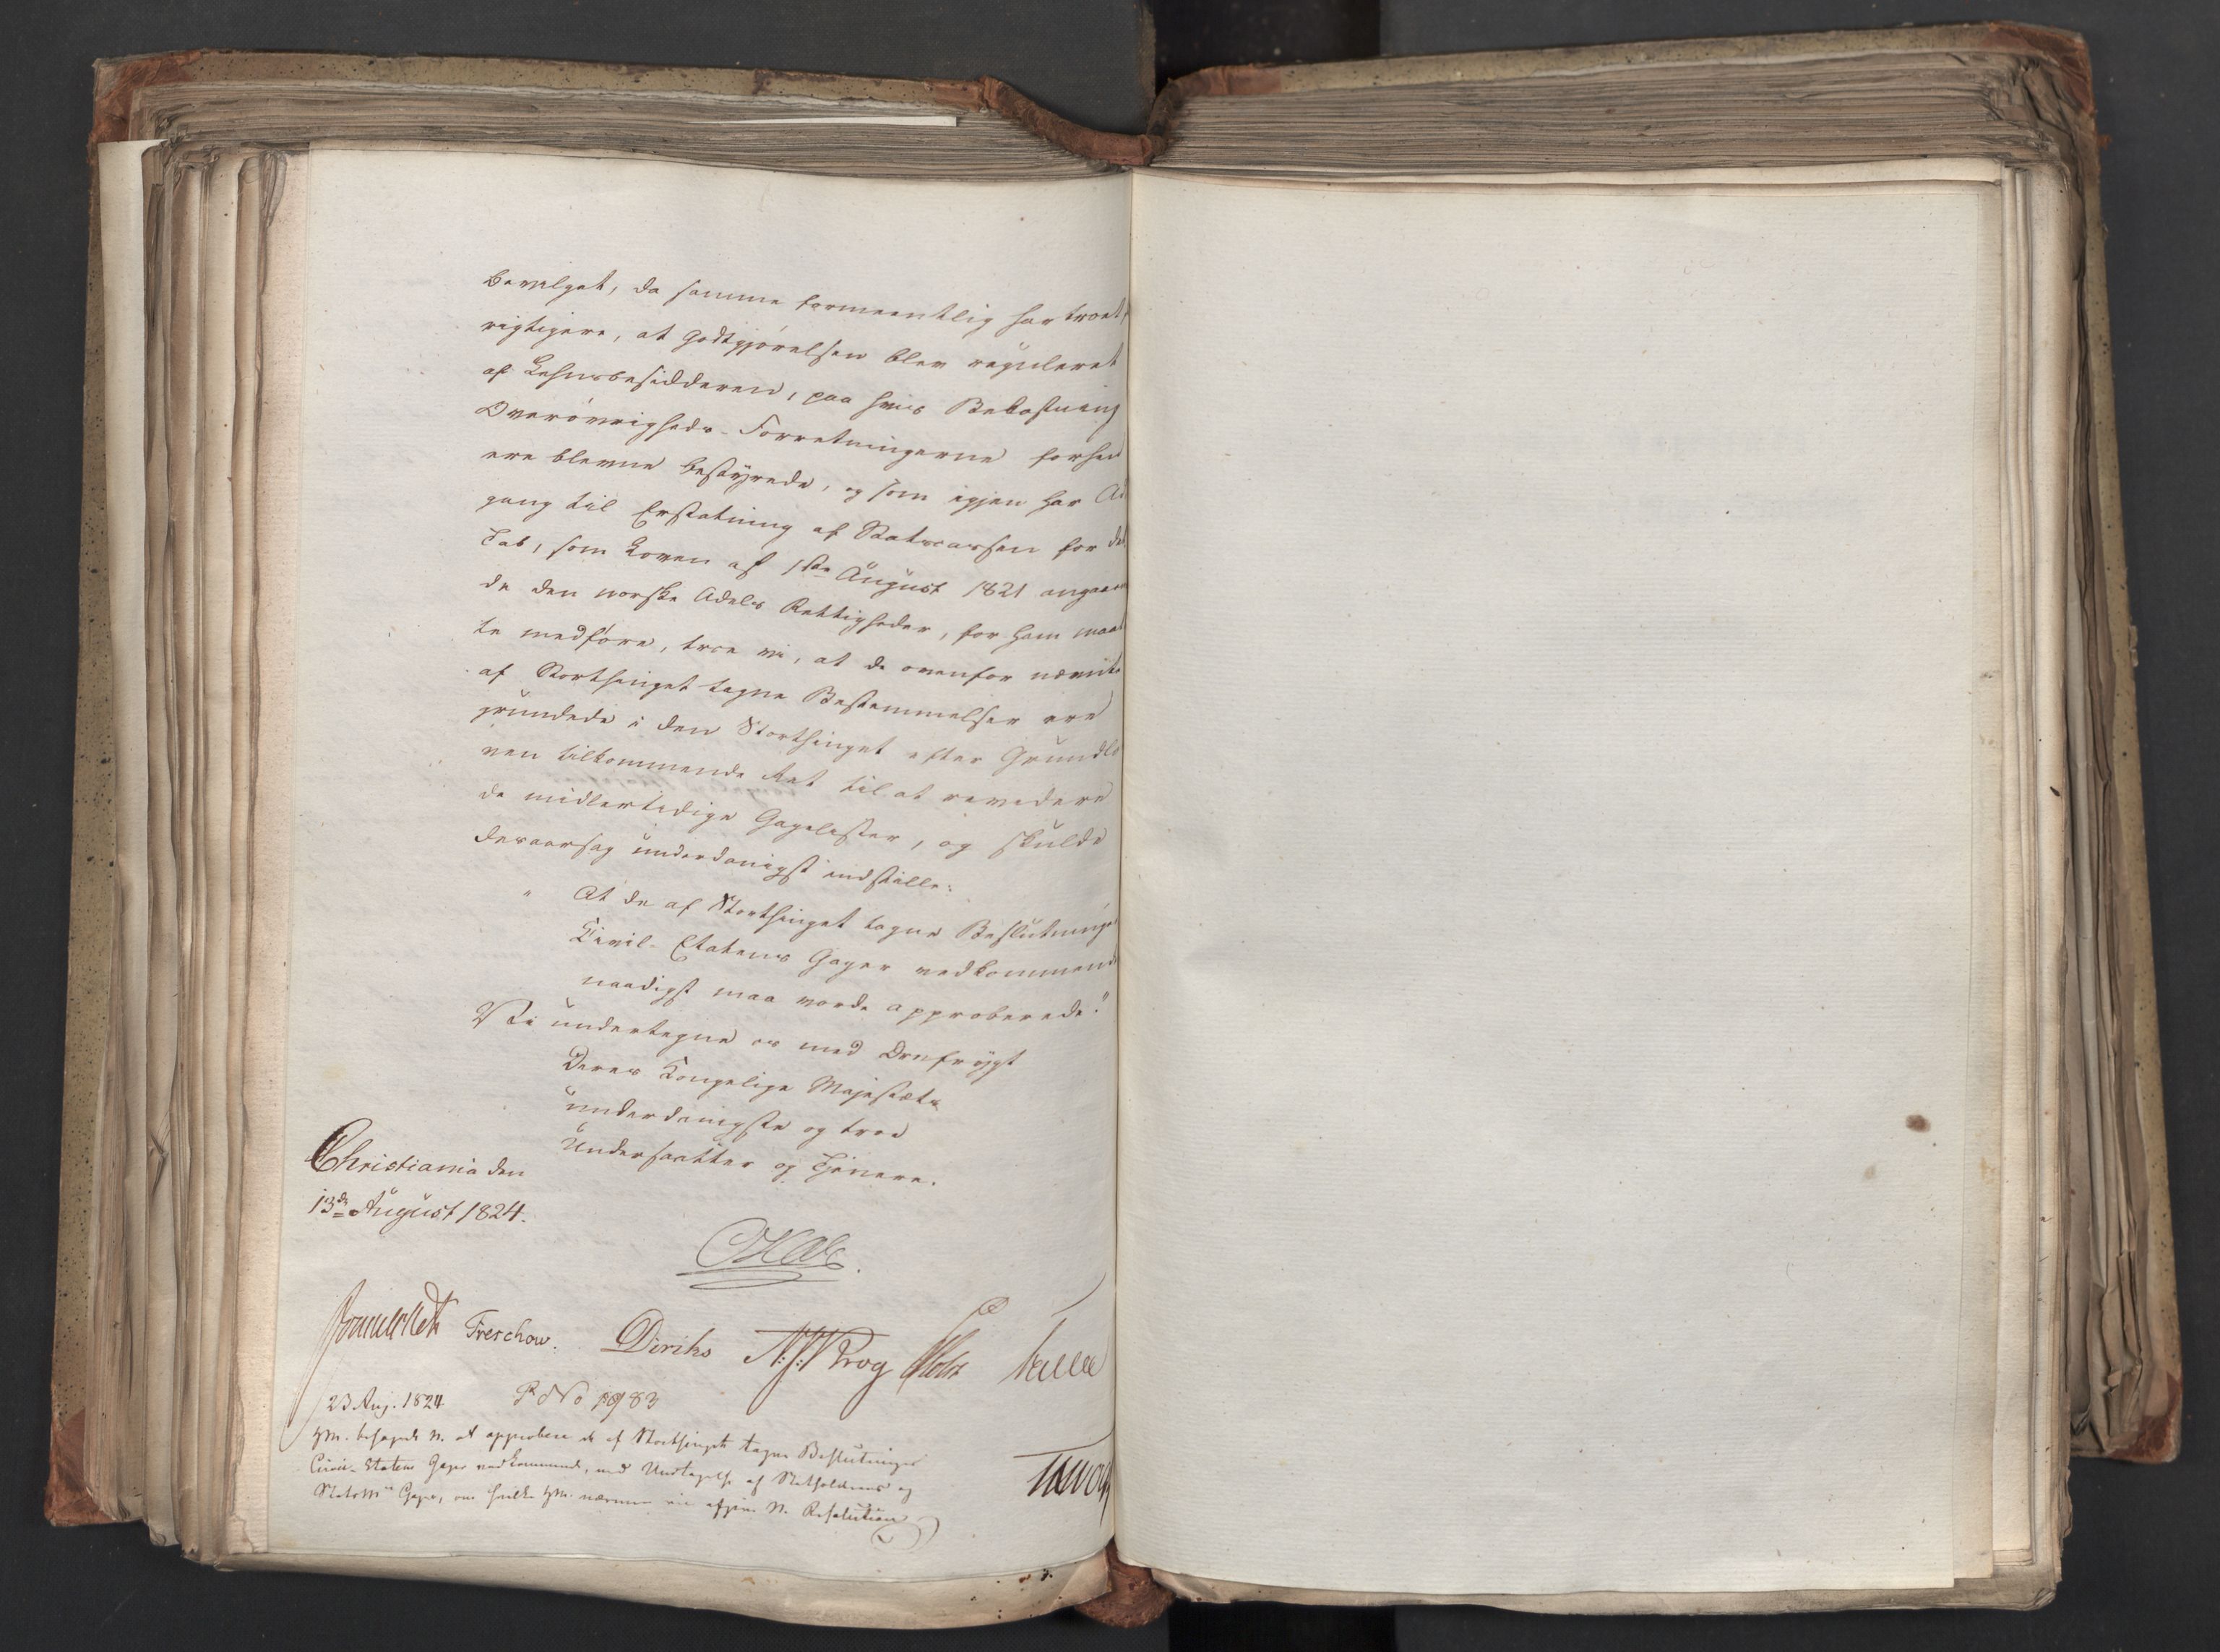 bevilget, da samme formeentlig har troet
rigtigere, at Godtgjørelsen blev reguleret
af Lehnsbesidderen, paa hvis Bekostning
Overøvrigheds-Forretningerne forhen
ere blevne bestyrede, og som igjen har Ad
gang til Erstatning af Statscassen for det
Tab, som Loven af 1ste August 1821 angaaen
de den norske Adels Rettigheder, for ham maat
te medføre, troe vi, at de ovenfor nævnte
af Storthinget tagne Bestemmelser ere
grundede i den Storthinget efter Grundlo
ven tilkommende Ret til at revidere
de midlertidige Gagelister, og skulde
desaarsag underdanigst indstille:
" At de af Storthinget tagne Beslutninger
Civil-Etatens Gager vedkommende
naadigst maa vorde approberede."
Vi undertegne os med Ærefrygt
Deres Kongelige Majestæts
underdanigste og troe
Undersaatter og Tjenere.
Christiania den
13de August 1824.
Treschow. Diriks
23 Aug. 1824 No 83
HM. behagede N. at approbere de af Storthinget tagne Beslutninger
Civil-Etatens Gager vedkommende, med Undtagelse af Statholderens og
Gager, om hvilke HM. nærmere vil afgive N. Resolution